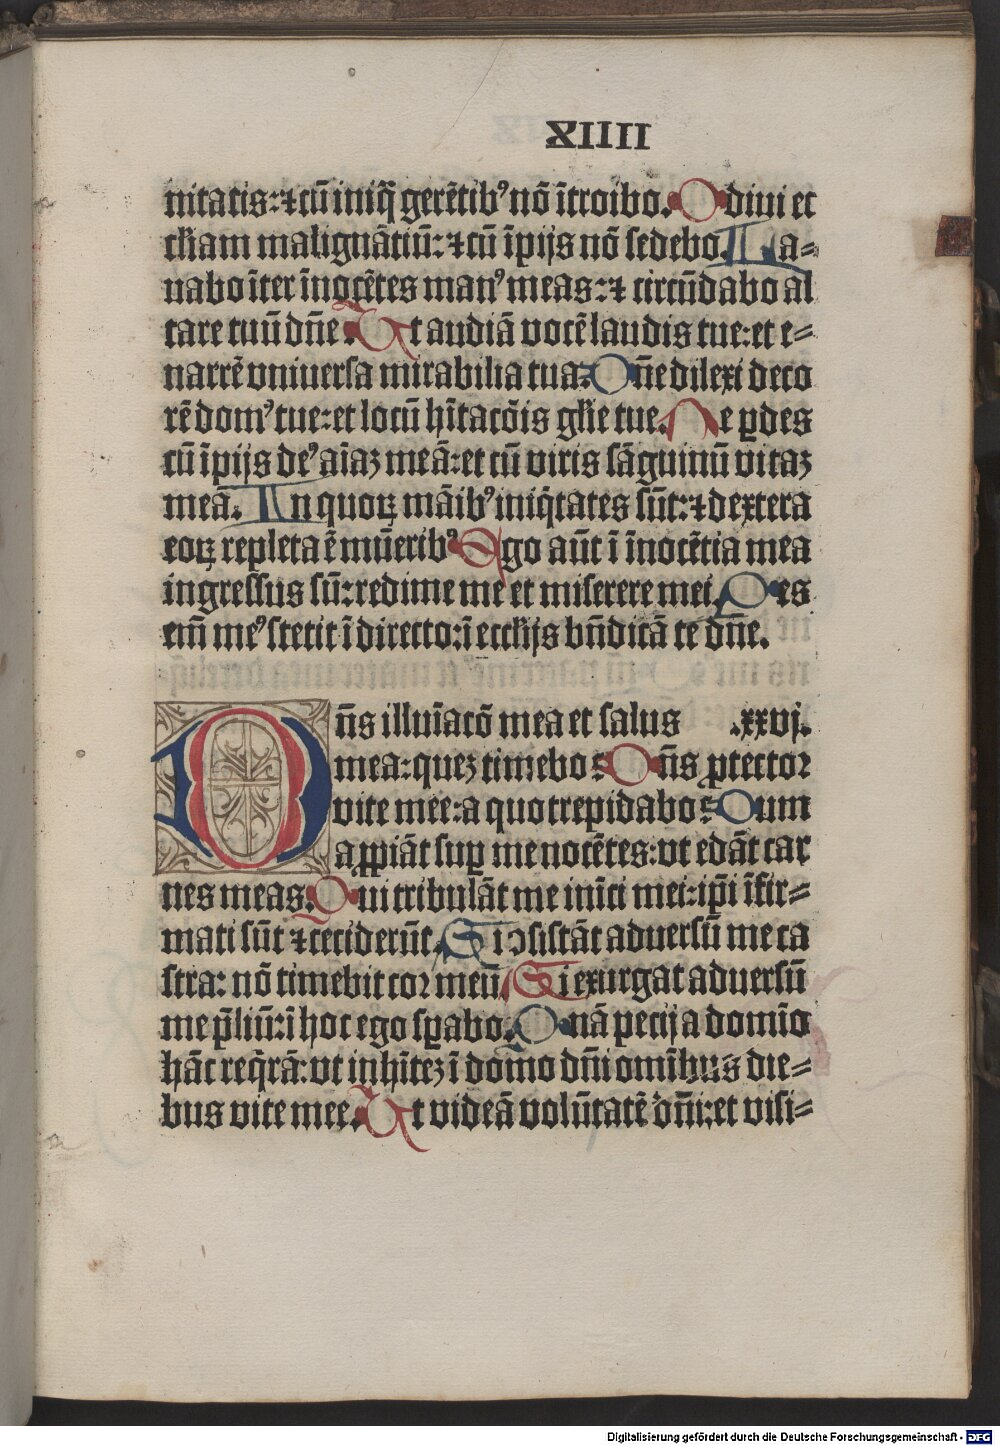 XIIII
nitatis:⁊cū iniq̄ gerētibꝰ nō ītroibo. Odiui et
ccl̄iam malignātiū:⁊cū īpijs nō sedebo. La⸗
nabo īter īnocētes manꝰ meas:⁊ circūdabo al
tare tuū dn̄e. Ut audiā vocē laudis tue:et e⸗
narrē vniuersa mirabilia tua. Dn̄e dilexi deco
rē domꝰ tue:et locū hītacōis glīe tue. Ne ꝑdes
cū īpijs deꝰ aīaꝫ meā:et cū viris sāguinū vitaꝫ
meā. In quoꝝ māibꝰ iniq̄tates sūt:⁊dextera
eoꝝ repleta ē mūeribꝰ. Ego aūt ī īnocētia mea
ingressus sū:redime me et miserere mei. Pes
em̄ meꝰ stetit ī directo:ī eccl̄ijs bn̄dicā te dn̄e.
Dn̄s illuīacō mea et salus .xxvj.
mea:queꝫ timebo: Dn̄s ꝓtector
vite mee:a quo trepidabo: Dum
aꝓpiāt suꝑ me nocētes:vt edāt car
nes meas. Qui tribulāt me inīci mei:ip̄i īfir⸗
mati sūt ⁊ceciderūt. Si ↄsistāt aduersū me ca
stra: nō timebit cor meū. Si exurgat aduersū
me p̄liū:ī hoc ego sꝑabo. Unā pecij a domīo
hāc req̄rā:vt inhīteꝫ ī domo dn̄i omībus die⸗
bus vite mee. Ut videā volūtatē dn̄i:et visi⸗
Digitalisierung gefördert durch die Deutsche Forschungsgemeinschaft - DFG